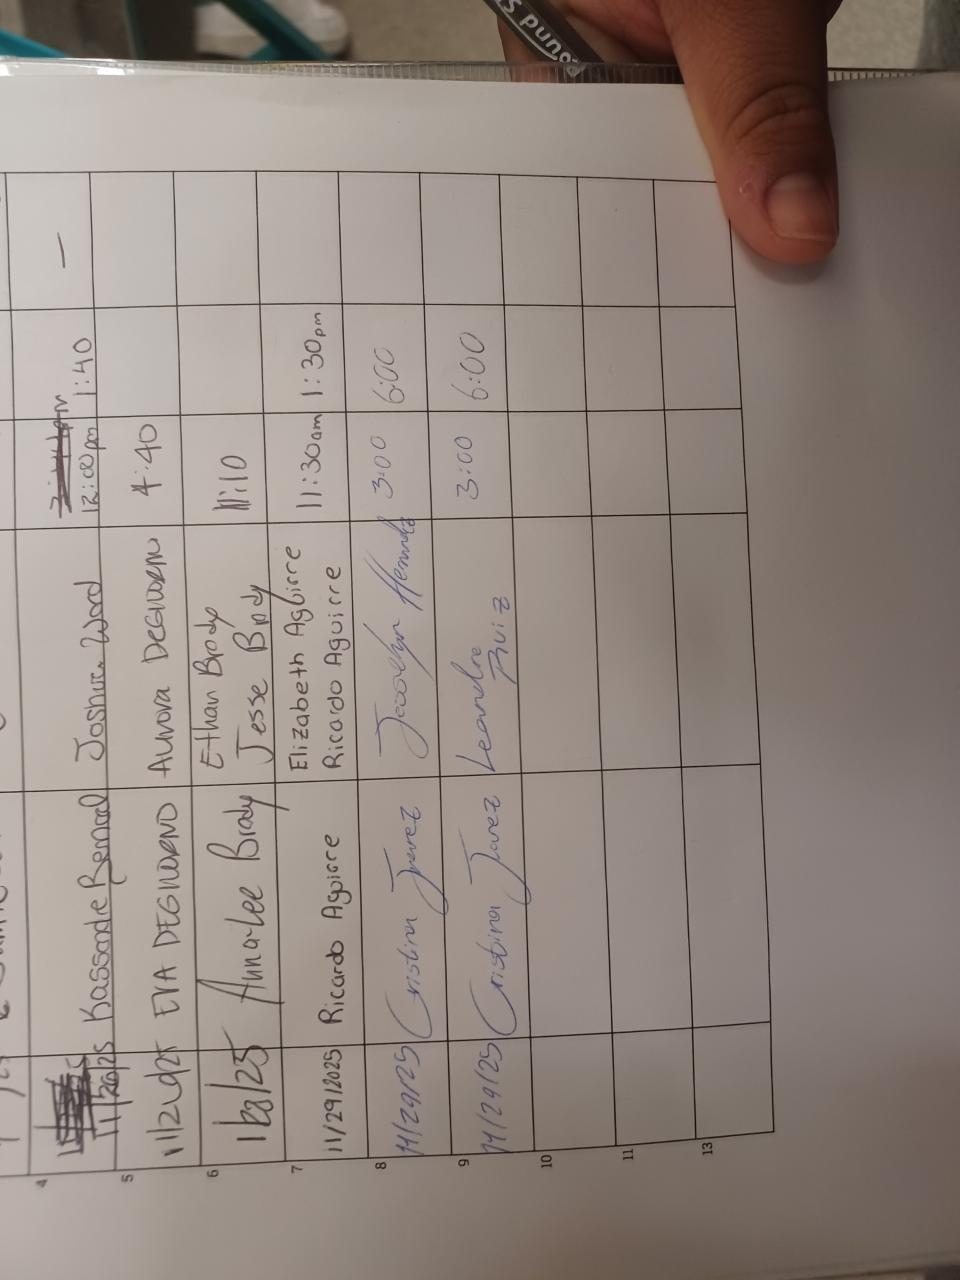 4 11/28/25 Kassandre Joshua Ward 12:00pm 1:40 —
5 EVA DEGNORNO Aurora DEGNORNO 4:40
6 Anna-Lee Brody Ethan Brody 11:10
Jesse Brody
7 11/29/2025 Ricardo Aguirre Elizabeth Aguirre 11:30am 1:30pm
Ricardo Aguirre
8 11/29/25 Cristina Juarez 3:00 6:00
9 11/29/25 Cristina Leandro 3:00 6:00
Ruiz
10
11
13